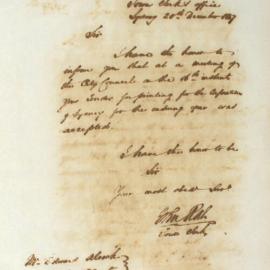 Town Clerk's Office
Sydney 20th December 1847
Sir
I have the honor to
inform you that at a meeting of
the City Council on the 16th instant
your tender for printing for the Corporation
of Sydney for the ensuing year was
accepted.
I have the honor to be
Sir
Your most obedt Servt
John Rae
Town Clerk
Mr Edward